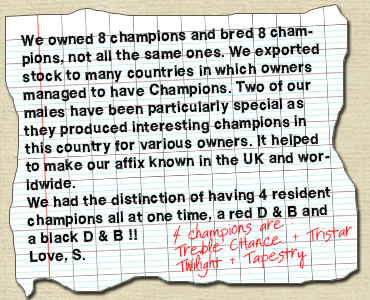 We owned 8 champions and bred 8 cham-
pions, not all the same ones. We exported
stock to many countries in which owners
managed to have Champions. Two of our
males have been particularly special as
they produced interesting champions in
this country for various owners. It helped
to make our affix known in the UK and wor-
ldwide.
We had the distinction of having 4 resident
champions all at one time, a red D & B and
a black D & B !!
Love, S.
4 champions are
Treble Chance + Tristar
Twilight + Tapestry